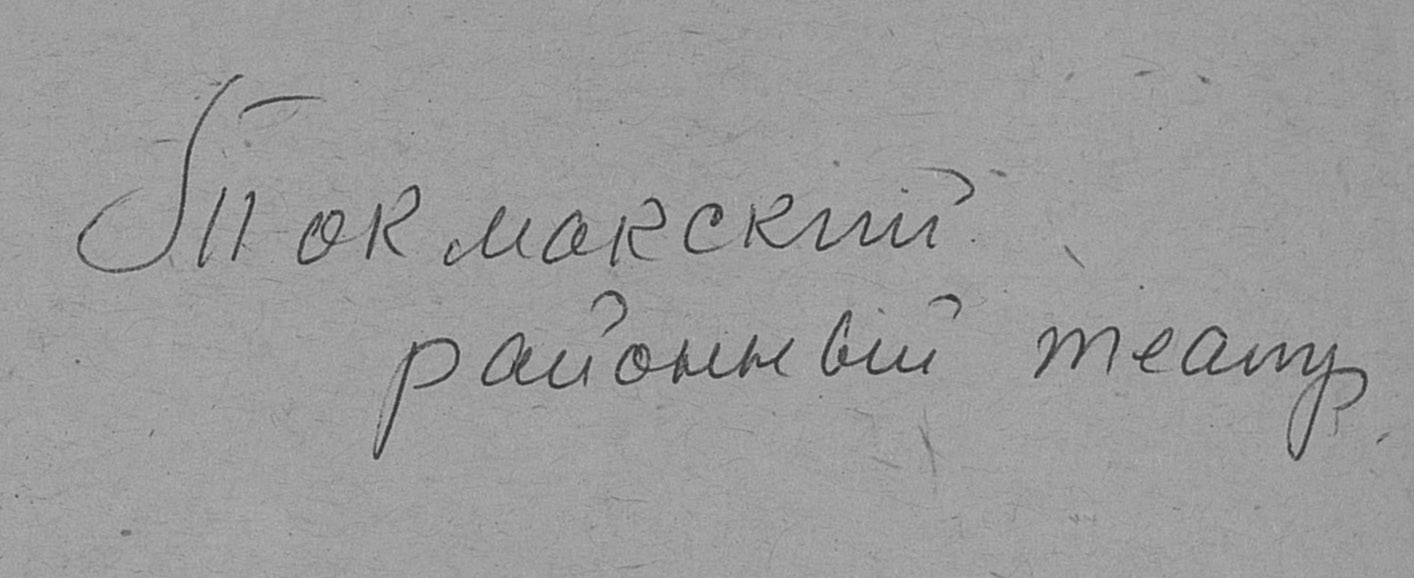 Токмакский
районный театр.